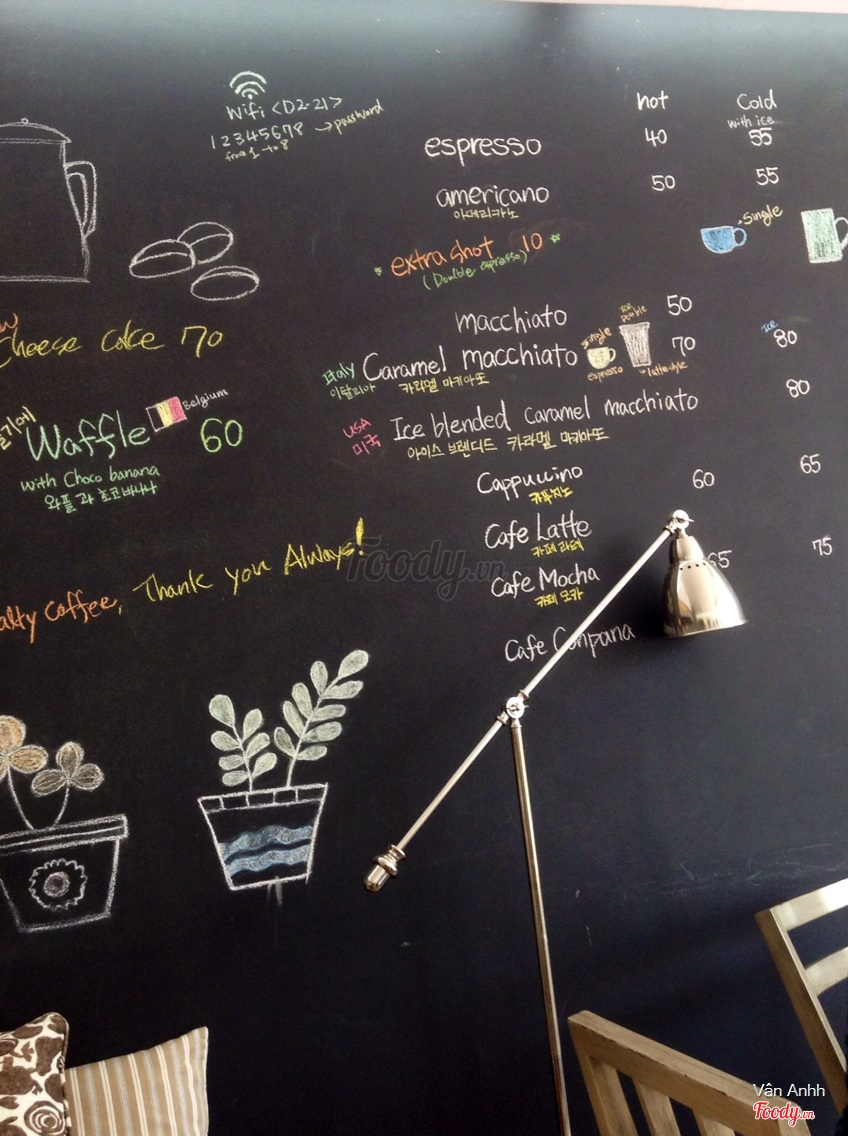 Wifi <D2-21>
12345678 → password
from 1 to 8
hot Cold
with ice
espresso 40 55
americano 50 55
아메리카노
single
extra shot 10
(Double espresso)
macchiato 50
Cheese cake 70
single
espresso
latte style
Italy Caramel macchiato 70 ICE 80
이탈리아 카라멜 마키아또
Waffle Belgium 60
with Choco banana
와플과 초코바나나
USA Ice blended Caramel macchiato 80
미국 아이스 브렌디드 카라멜 마키아또
Cappuccino 60 65
카푸치노
Cafe Latte
카페 라떼
alty coffee, Thank you Always!
Cafe Mocha 65 75
카페 모카
Cafe Conpana
Foody.vn
Vân Anhh
Foody.vn